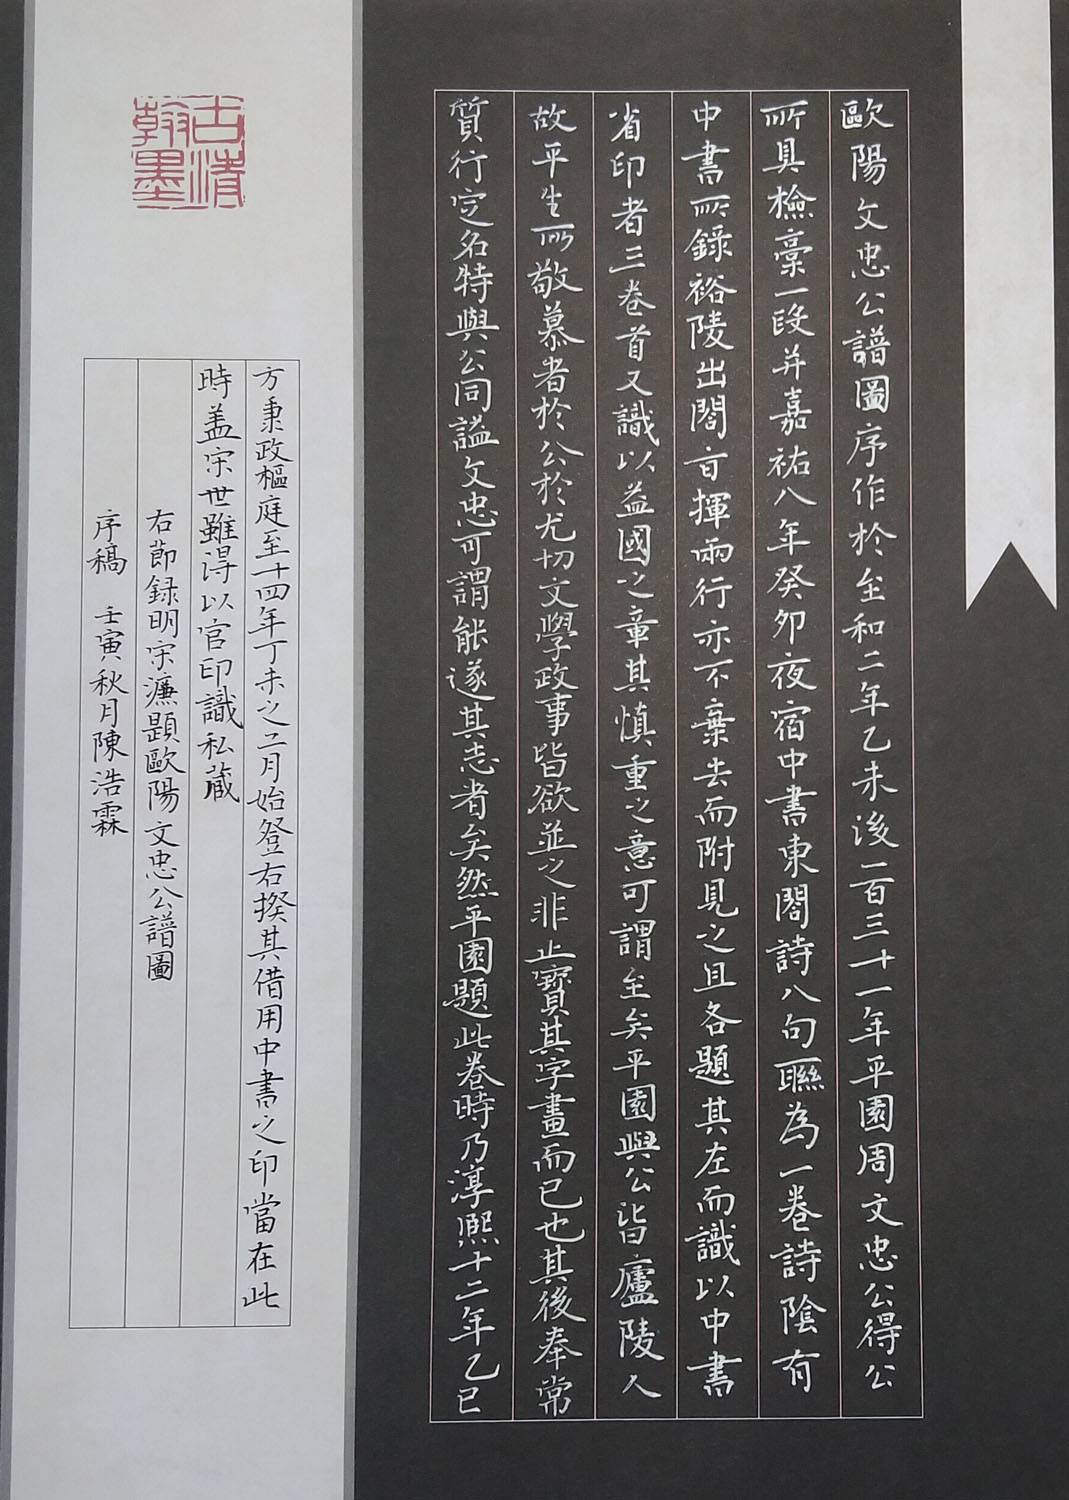 歐陽文忠公譜圖序作於至和二年乙未後一百三十一年平園周文忠公得公
所具檢稾一段并嘉祐八年癸卯夜宿中書東閣詩八句聯為一卷詩陰有
中書所錄裕陵出閣旨揮兩行亦不棄去而附見之且各題其左而識以中書
省印者三卷首又識以益國之章其慎重之意可謂至矣平園與公皆廬陵人
故平生所敬慕者於公於尤切文學政事皆欲並之非止寶其字畫而已也其後奉常
質行定名特與公同謚文忠可謂能遂其志者矣然平園題此卷時乃淳熙十二年乙巳
方秉政樞庭至十四年丁未之二月始登右揆其借用中書之印當在此
時盖宋世雖得以官印識私蔵
右節録明宋濂題歐陽文忠公譜圖
序稿 壬寅秋月陳浩霖
古清翰墨